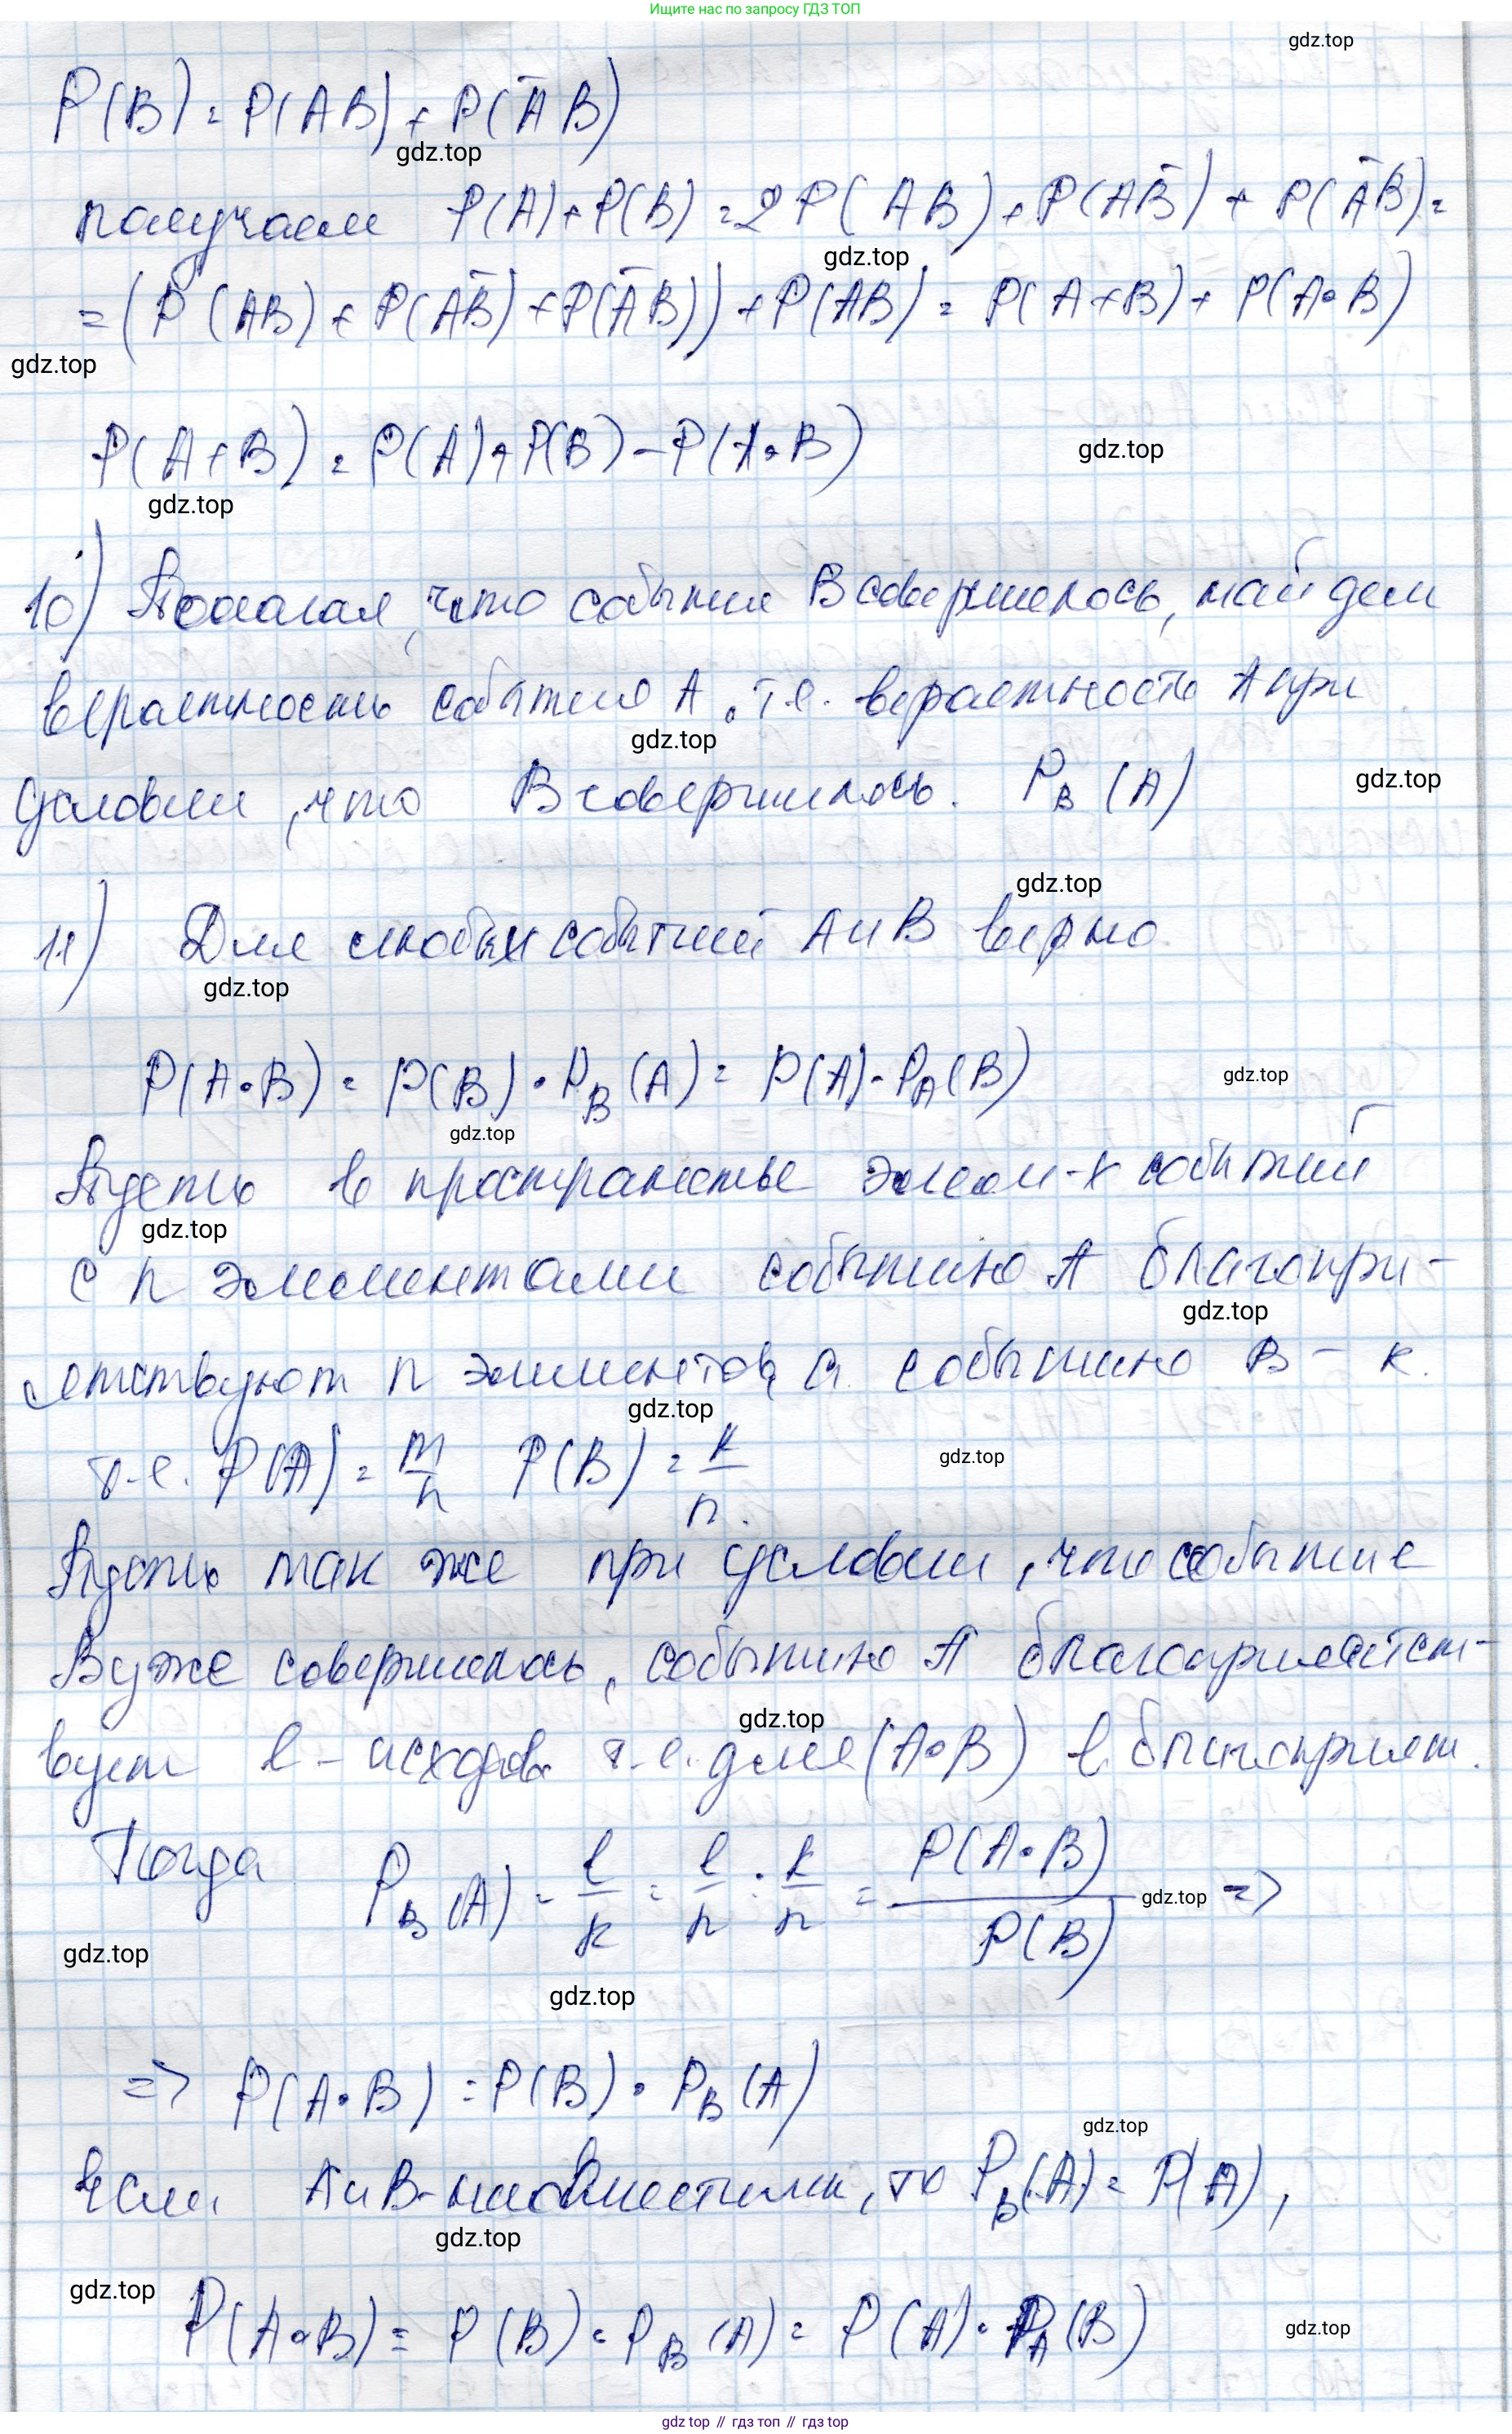 Ищите нас по запросу ГДЗ ТОП
gdz.top
P(B) = P(AB) + P(A̅B)
gdz.top
получаем P(A) + P(B) = 2P(AB) + P(AB̅) + P(A̅B) =
gdz.top
= (P(AB) + P(AB̅) + P(A̅B)) + P(AB) = P(A+B) + P(A∘B)
gdz.top
P(A+B) = P(A) + P(B) − P(A∘B)
gdz.top
gdz.top
10) Полагая, что событие B совершилось, найдем
вероятность события A, т.е. вероятность A при
gdz.top
условии, что B совершилось. P_B(A)
gdz.top
gdz.top
11) Для любых событий A и B верно
gdz.top
P(A∘B) = P(B)·P_B(A) = P(A)·P_A(B)
gdz.top
gdz.top
Пусть в пространстве элем-х событий
gdz.top
с n элементами событию A благопри-
gdz.top
ятствуют n элементов, а событию B − k.
gdz.top
т.е. P(A) = m/n P(B) = k/n.
gdz.top
Пусть так же при условии, что событие
B уже совершилось, событию A благоприятст-
gdz.top
вует l − исходов т.е. для (A∘B) l благоприят.
Тогда P_B(A) = l/k = l/n : k/n = P(A·B)/P(B) =>
gdz.top
gdz.top
gdz.top
=> P(A·B) = P(B)·P_B(A)
gdz.top
если A и B − несовместимы, то P_B(A) = P(A),
gdz.top
gdz.top
P(A∘B) = P(B)·P_B(A) = P(A)·P_A(B)
gdz.top
gdz.top // гдз топ // гдз top